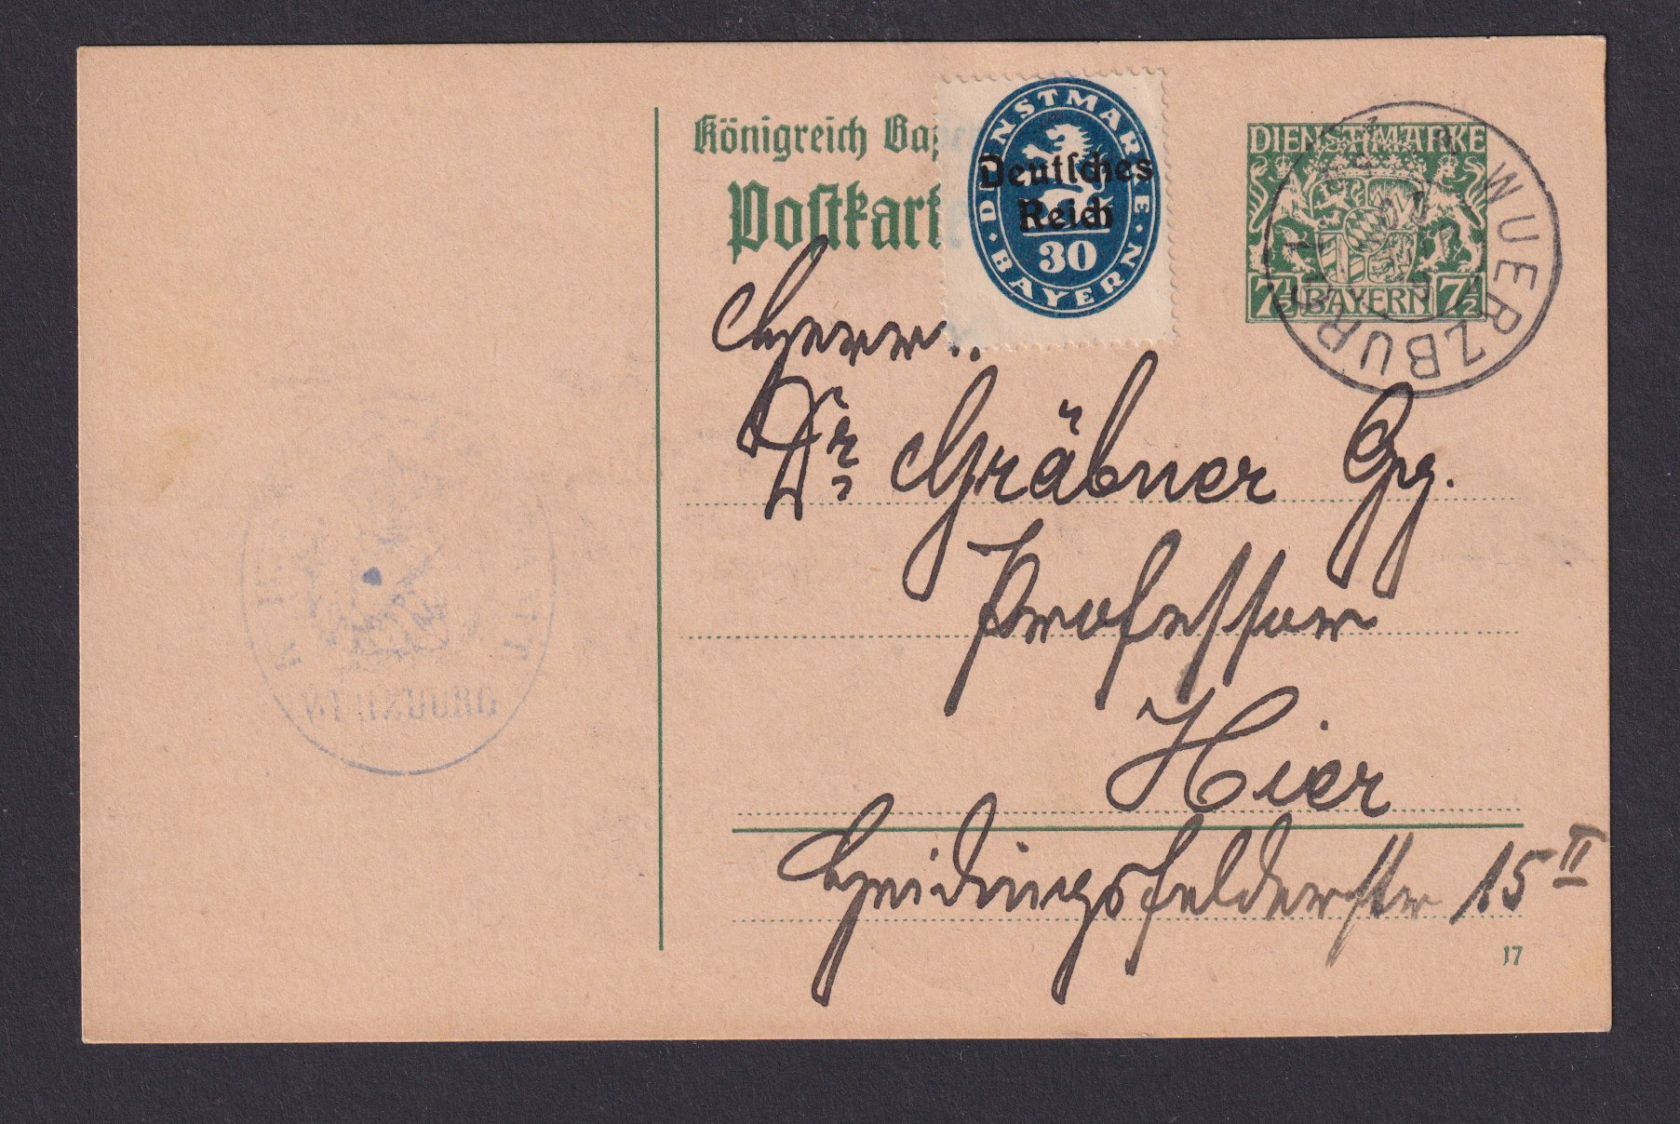 Königreich Bayern
Postkarte
DIENSTMARKE
Deutsches
Reich
30
BAYERN
DIENSTMARKE
7½ BAYERN 7½
WUERZBURG
Herrn
Dr. Gräbner Gg.
Professor
Hier
Heidingsfelderstr 15 II
17